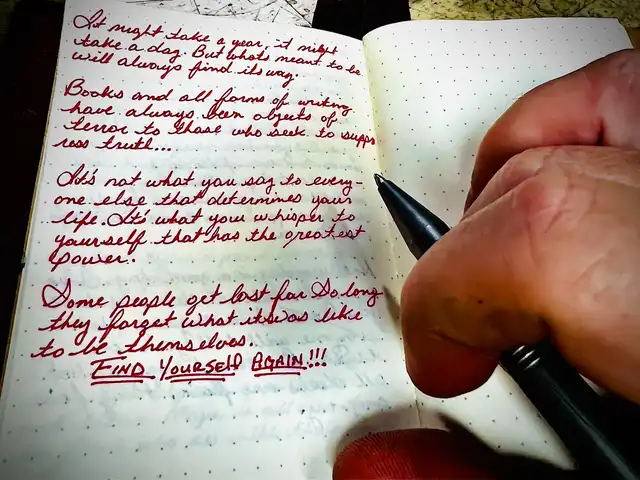 It might take a year, it might
take a day. But what's meant to be
will always find its way.
Books and all forms of writing
have always been objects of
terror to those who seek to supp
ress truth...
It's not what you say to every-
one else that determines your
life. It's what you whisper to
yourself that has the greatest
power.
Some people get lost for so long
they forget what it was like
to be themselves.
FIND YOURSELF AGAIN!!!